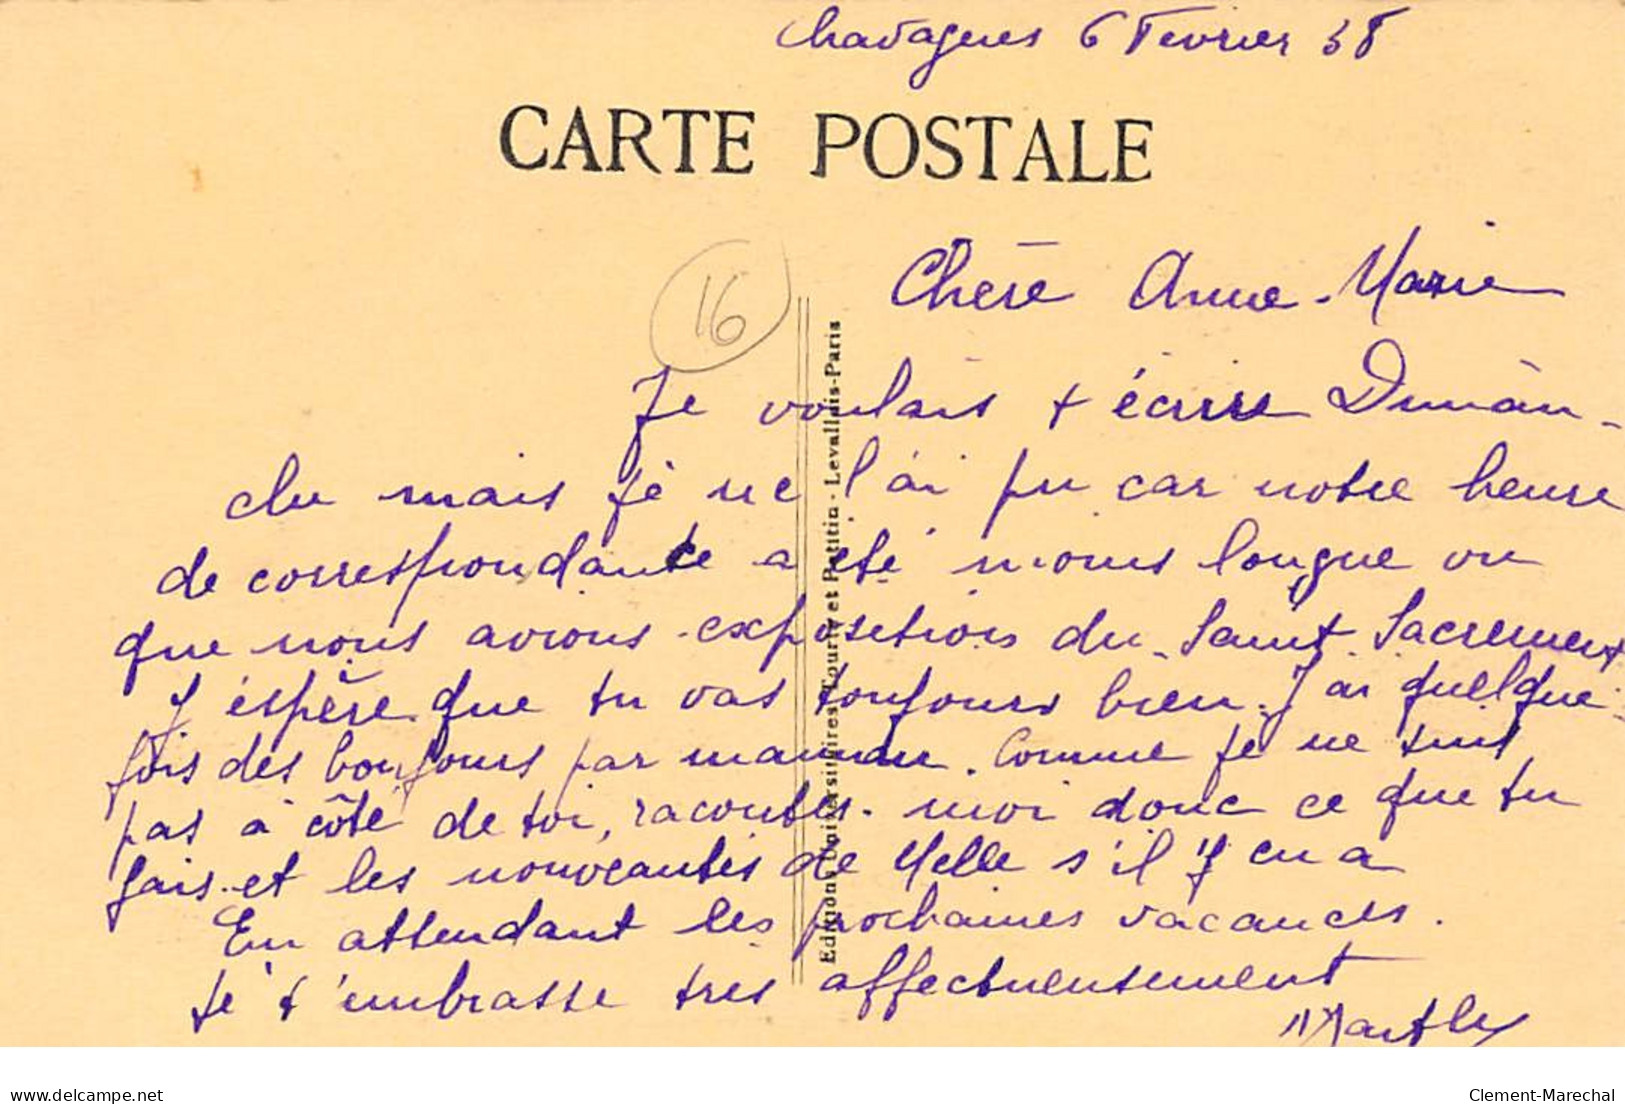 Chavagnes 6 Fevrier 38
CARTE POSTALE
16
Chère Anne-Marie
Je voulais t écrire Diman-
che mais je ne l'ai pu car notre heure
de correspondante a été moins longue vu
que nous avions exposition du Saint Sacrement
J'éspère que tu vas toujours bien. J'ai quelque-
fois des bonjours par maman. Comme je ne suis
pas à côté de toi, racontes-moi donc ce que tu
fais et les nouveautés de Melle s'il y en a
En attendant les prochaines vacances.
je t'embrasse très affectueusement
Marthe
Editions Universitaires Tourte et Petitin - Levallois-Paris
delcampe.net
Clement-Marechal